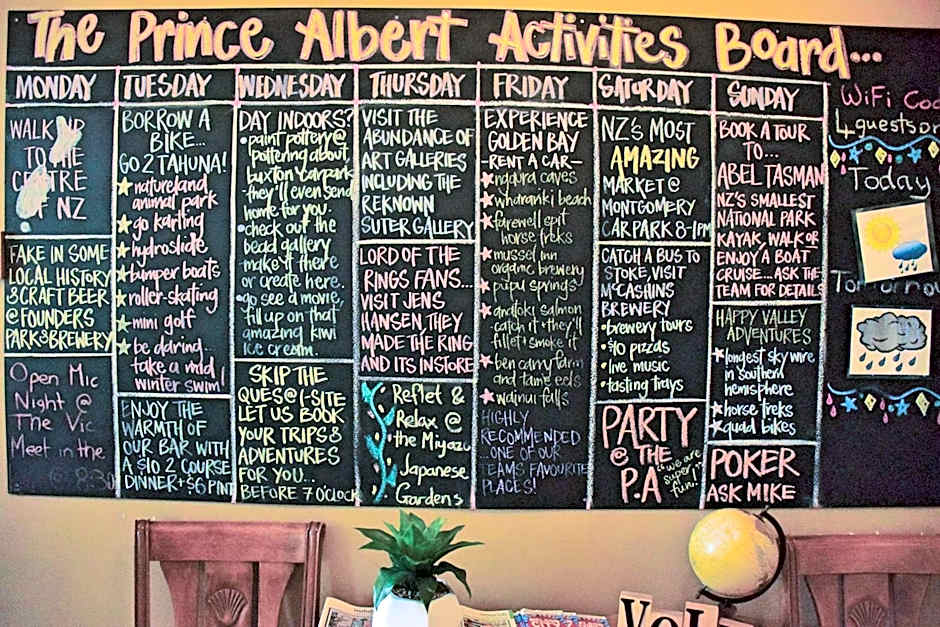 The Prince Albert Activities Board...
MONDAY
WALK UP
TO THE
CENTRE
OF NZ
TAKE IN SOME
LOCAL HISTORY
& CRAFT BEER
@ FOUNDERS
PARK & BREWERY
Open Mic
Night @
The Vic
Meet in the
TUESDAY
BORROW A
BIKE...
GO 2 TAHUNA!
natureland
animal park
go karting
hydroslide
bumper boats
roller-skating
mini golf
be daring...
take a mid
winter swim!
ENJOY THE
WARMTH OF
OUR BAR WITH
A $10 2 COURSE
DINNER + $6 PINT
WEDNESDAY
DAY INDOORS?
• paint pottery @
pottering about
buxton carpark
they'll even send
home for you.
• check out the
bead gallery
make it there
or create here.
• go see a movie,
fill up on that
amazing kiwi
ice cream.
SKIP THE
QUES @ I-SITE
LET US BOOK
YOUR TRIPS &
ADVENTURES
FOR YOU...
BEFORE 7 O'CLOCK
THURSDAY
VISIT THE
ABUNDANCE OF
ART GALLERIES
INCLUDING THE
REKNOWN
SUTER GALLERY
LORD OF THE
RINGS FANS...
VISIT JENS
HANSEN, THEY
MADE THE RING
AND ITS INSTORE
Reflet &
Relax @
the Miyazu
Japanese
Gardens
FRIDAY
EXPERIENCE
GOLDEN BAY
-RENT A CAR-
ngarua caves
wharariki beach
farewell spit
horse treks
mussel inn
organic brewery
pupu springs
anatoki salmon
catch it & they'll
fillet & smoke it
ben carry farm
and tame eels
wainui falls
HIGHLY
RECOMMENDED
...ONE OF OUR
TEAMS FAVOURITE
PLACES!
SATURDAY
NZ'S MOST
AMAZING
MARKET @
MONTGOMERY
CARPARK 8-1PM
CATCH A BUS TO
STOKE, VISIT
McCASHINS
BREWERY
• brewery tours
• $10 pizzas
• live music
• tasting trays
PARTY
@ THE
P.A
"we are
super
fun."
SUNDAY
BOOK A TOUR
TO...
ABEL TASMAN
NZ'S SMALLEST
NATIONAL PARK
KAYAK, WALK OR
ENJOY A BOAT
CRUISE...ASK THE
TEAM FOR DETAILS
HAPPY VALLEY
ADVENTURES
longest skywire
in southern
hemisphere
horse treks
quad bikes
POKER
ASK MIKE
WiFi Cod
4 guests or
Today
Tomorrow